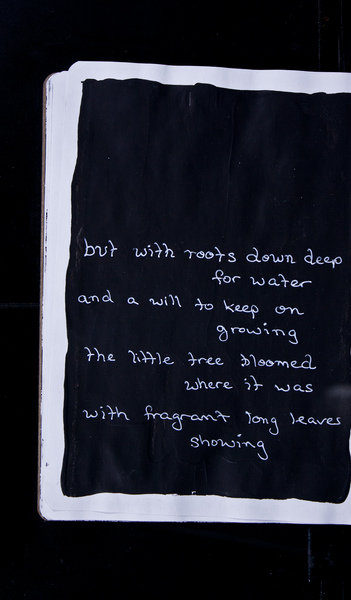 but with roots down deep
for water
and a will to keep on
growing
the little tree bloomed
where it was
with fragrant long leaves
showing